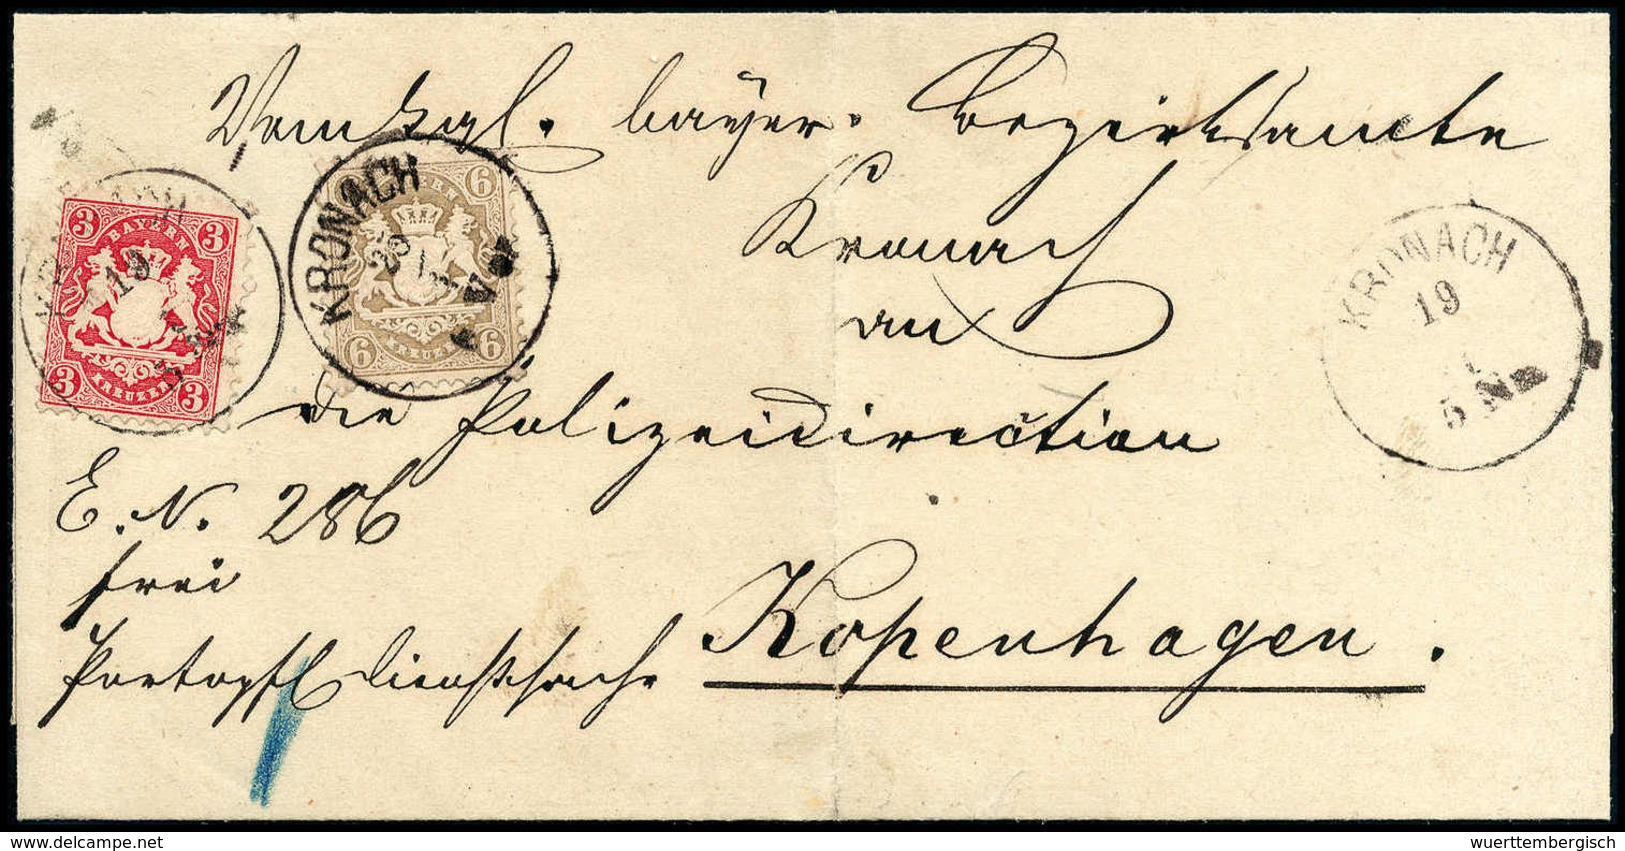 Vom kgl. bayer. Bezirksamte
Kronach
an
die Polizeidirection
Kopenhagen.
E. N. 286
frei
Portopfl Dienstsache
3 3
BAYERN
3 3
KREUZER
19
KRONACH
26
6 6
BAYERN
6 6
KREUZER
KRONACH
19
5 Nm
wuerttembergisch